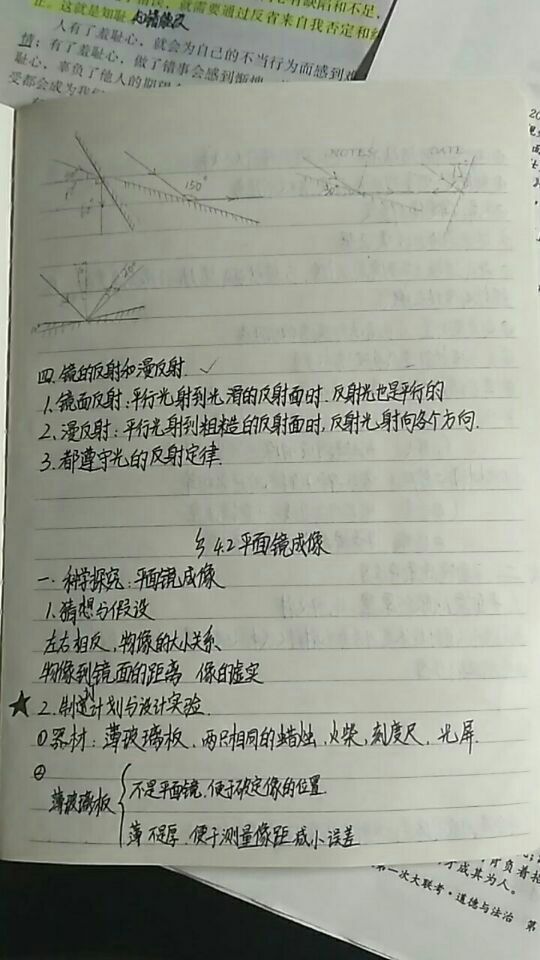 有缺陷和不足,
正。这就是知耻
就需要通过反省来自我否定和
人有了羞耻心,就会为自己的不当行为而感到
情;有了羞耻心,做了错事会感到惭愧
耻心,辜负了他人的期望
受都会成为我们
NOTES DATE
150°
四.镜面反射和漫反射. ✓
1.镜面反射:平行光射到光滑的反射面时.反射光也是平行的
2.漫反射:平行光射到粗糙的反射面时,反射光射向各个方向.
3.都遵守光的反射定律.
§4.2平面镜成像
一.科学探究:平面镜成像
1.猜想与假设
左右相反,物像的大小关系、
物像到镜面的距离 像的虚实
★2.制定计划与设计实验.
①器材:薄玻璃板,两只相同的蜡烛,火柴,刻度尺,光屏.
②
薄玻璃板
不是平面镜.便于确定像的位置.
薄 不是厚,便于测量像距.减小误差
背负着
才成其为人。
第一次大联考·道德与法治 第